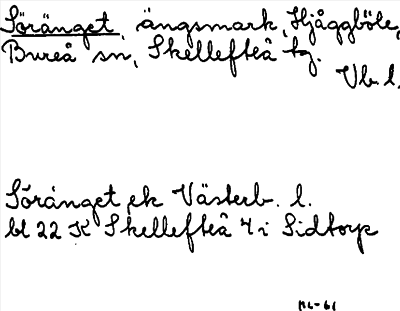 Söränget, ängsmark, Hjåggböle,
Bureå sn, Skellefteå tg.
Vb. l.
Söränget ek Västerb. l.
bl 22 K Skellefteå 4 i Sidtorp
ML-61